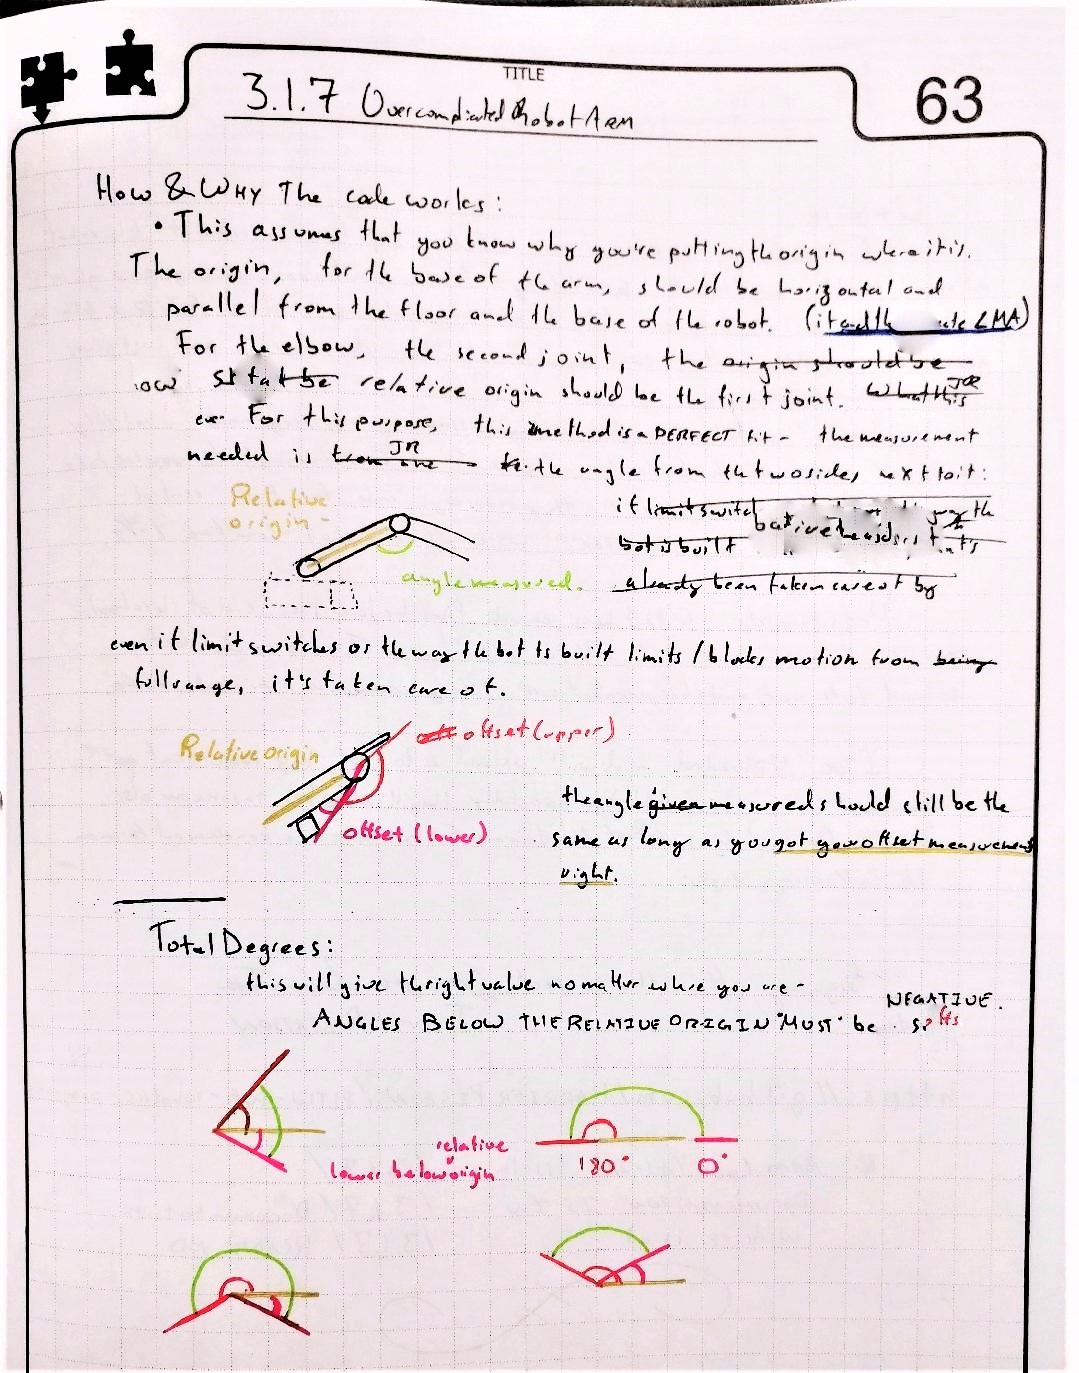 TITLE
3.1.7 Overcomplicated Robot ARM
63
How & WHY The code works:
• This assumes that you know why you're putting the origin where it is.
The origin, for the base of the arm, should be horizontal and
parallel from the floor and the base of the robot. (it
For the elbow, the second joint, the origin should be
relative origin should be the first joint. What this JR
For this purpose, this method is a PERFECT fit - the measurement
needed is from one JR the angle from the two sides next to it:
Relative
origin -
angle measured.
if limit switch the
bot is built
already been taken care of by
even if limit switches or the way the bot is built limits / blocks motion from being
full range, it's taken care of.
Relative origin
off offset (upper)
offset (lower)
the angle given measured should still be the
same as long as you got your offset measurement
right.
Total Degrees:
this will give the right value no matter where you are -
NEGATIVE.
ANGLES BELOW THE RELATIVE ORIGIN "MUST" be
relative
lower below origin
180° 0°